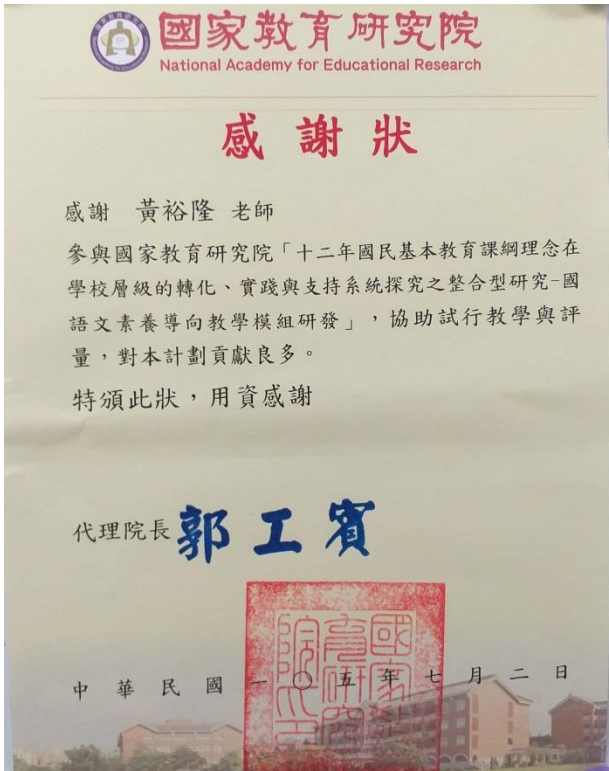 國家教育研究院
National Academy for Educational Research
感謝狀
感謝 黃裕隆 老師
參與國家教育研究院「十二年國民基本教育課綱理念在
學校層級的轉化、實踐與支持系統探究之整合型研究-國
語文素養導向教學模組研發」，協助試行教學與評
量，對本計劃貢獻良多。
特頒此狀，用資感謝
代理院長 郭工賓
中華民國一〇五年七月二日